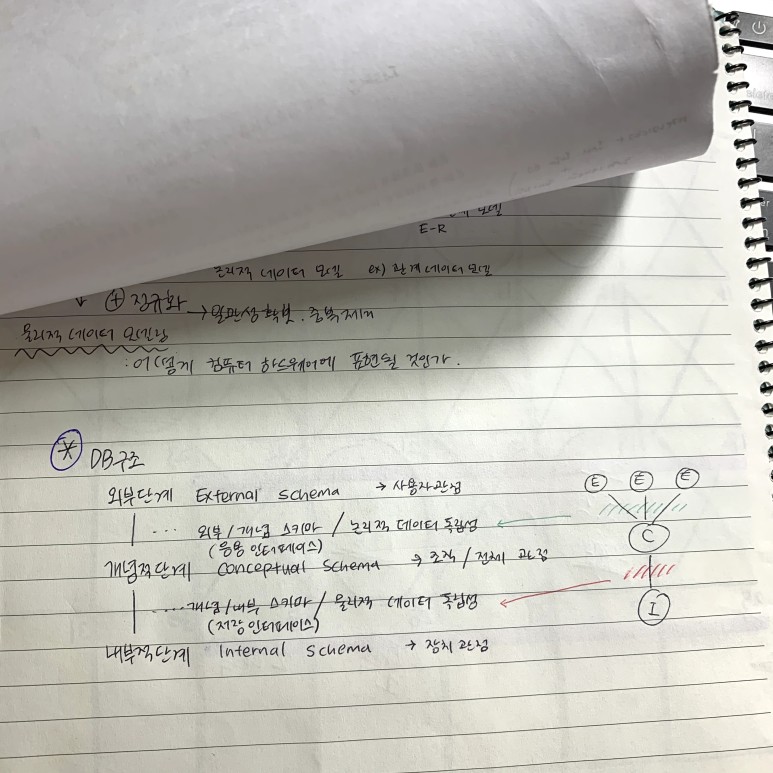 모델
E-R
논리적 데이터 모델 ex) 관계 데이터 모델
↓ ⊕ 정규화 → 일관성 확보. 중복제거
물리적 데이터 모델링
: 어떻게 컴퓨터 하드웨어에 표현될 것인가.
* DB구조
외부단계 External schema → 사용자관점
E E E
... 외부/개념 스키마 / 논리적 데이터 독립성
(응용 인터페이스)
C
개념적단계 Conceptual Schema → 조직/전체 관점
.... 개념/내부 스키마 / 물리적 데이터 독립성
(저장 인터페이스)
I
내부적단계 Internal schema → 장치 관점